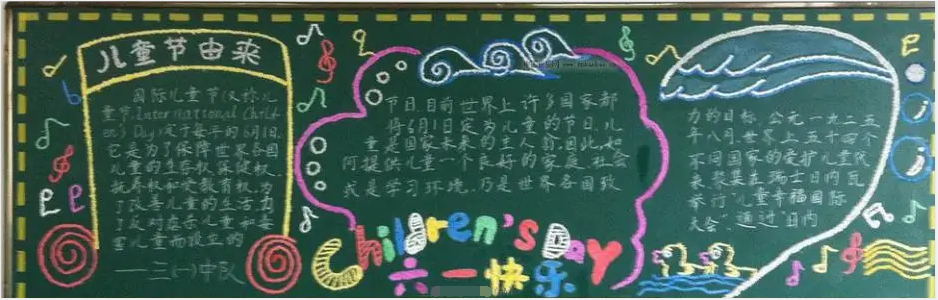 儿童节由来
国际儿童节(又称儿
童节,International Child-
ren's Day)定于每年的6月1日。
它是为了保障世界各国
儿童的生存权、保健权、
抚养权和受教育权,为
了改善儿童的生活,为
了反对虐杀儿童和毒
害儿童而设立的
——三(一)中队
节日目前世界上许多国家都
将6月1日定为儿童的节日,儿
童是国家未来的主人翁,因此,如
何提供儿童一个良好的家庭、社会
或是学习环境,乃是世界各国致
力的目标。公元一九二五
年八月世界上五十四个
不同国家的爱护儿童代
表,聚集在瑞士日内瓦
举行"儿童幸福国际
大会",通过"日内
Children's Day
六一快乐